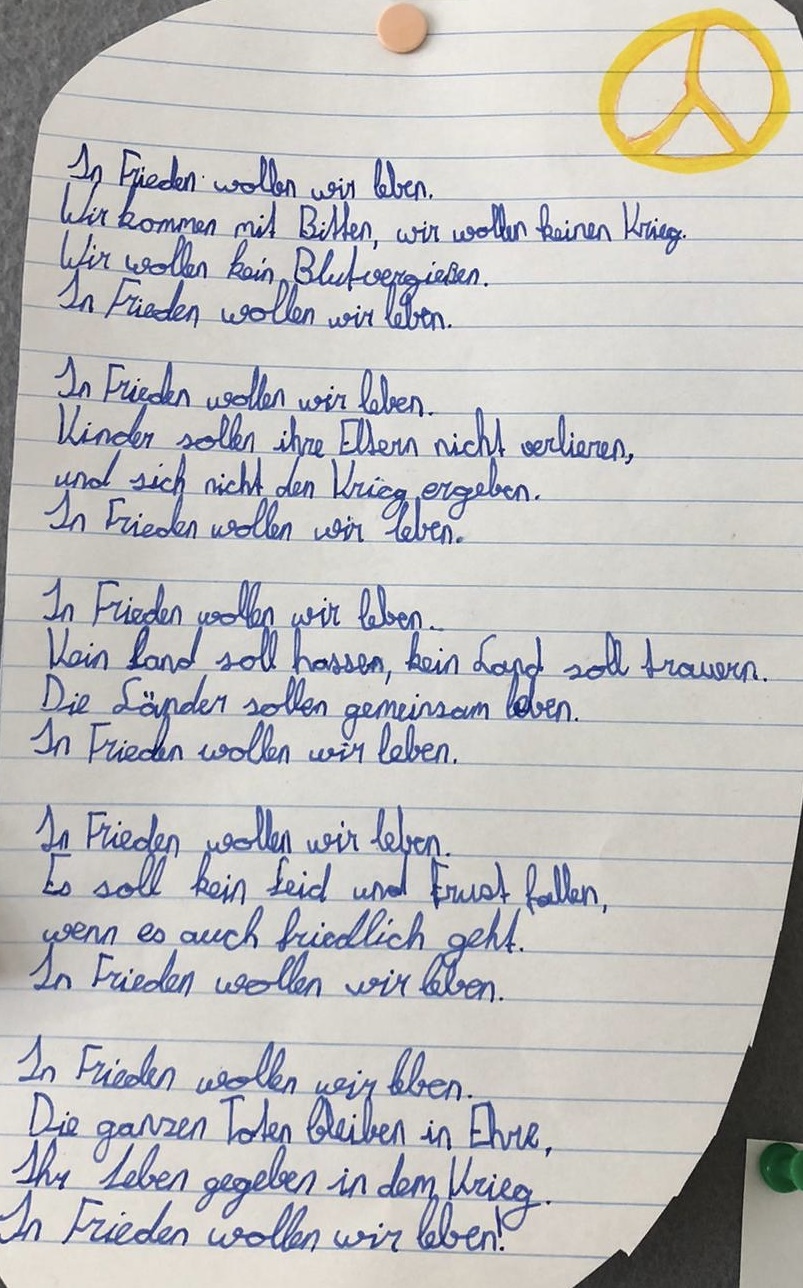 In Frieden wollen wir leben.
Wir kommen mit Bitten, wir wollen keinen Krieg.
Wir wollen kein Blutvergießen.
In Frieden wollen wir leben.
In Frieden wollen wir leben.
Kinder sollen ihre Eltern nicht verlieren,
und sich nicht den Krieg ergeben.
In Frieden wollen wir leben.
In Frieden wollen wir leben.
Kein Land soll hassen, kein Land soll trauern.
Die Länder sollen gemeinsam leben.
In Frieden wollen wir leben.
In Frieden wollen wir leben.
Es soll kein Leid und Frust fallen,
wenn es auch friedlich geht.
In Frieden wollen wir leben.
In Frieden wollen wir leben.
Die ganzen Toten bleiben in Ehre,
Ihr Leben gegeben in dem Krieg.
In Frieden wollen wir leben!